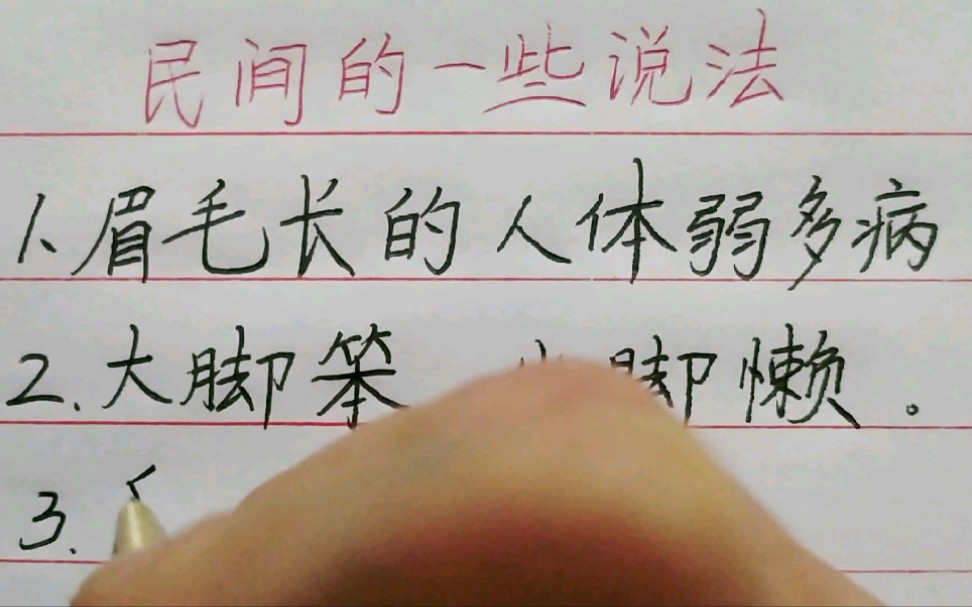 民间的一些说法
1、眉毛长的人体弱多病
2.大脚笨 脚懒。
3.